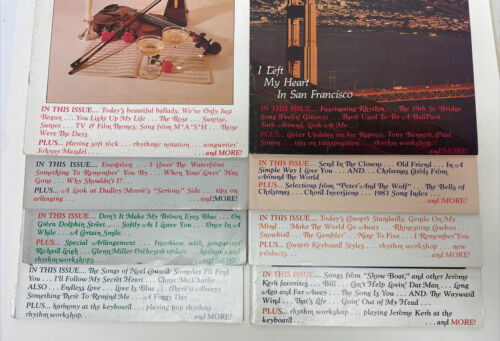 IN THIS ISSUE... Today's beautiful ballads: We've Only Just
Begun . . . You Light Up My Life . . . The Rose . . . Sunrise,
Sunset . . . TV & Film Themes: Song from M*A*S*H . . . Those
Were The Days.
PLUS... playing soft rock . . . rhythmic notation . . . songwriter
Johnny Mandel ...and MORE!
IN THIS ISSUE... Evergreen . . . I Cover The Waterfront
Something To Remember You By . . . When Your Lover Has
Gone . . . Why Shouldn't I?
PLUS... A Look at Dudley Moore's "Serious" Side . . . tips on
arranging ...and MORE!
IN THIS ISSUE... Don't It Make My Brown Eyes Blue . . . On
Green Dolphin Street . . . Softly As I Leave You . . . Once In A
While . . . A Certain Smile.
PLUS... Special Arrangement . . . Interview with songwriter
Richard Leigh . . . Glenn Miller Orchestra update . . . harmony
workshops ...and MORE!
IN THIS ISSUE... The Songs of Noel Coward: Someday I'll Find
You . . . I'll Follow My Secret Heart . . . Chase Me, Charlie . . .
ALSO . . . Endless Love . . . Love Is Blue . . . There's Always
Something There To Remind Me . . . A Foggy Day
PLUS... harmony at the keyboard . . . playing pop rhythms . . .
rhythm workshops ...and MORE!
I Left
My Heart
In San Francisco
IN THIS ISSUE... Fascinating Rhythm . . . The 59th St. Bridge
Song (Feelin' Groovy) . . . There Used To Be A Ball Park . . .
Turn Around, Look At Me . . .
PLUS... Career Updates on Joe Raposo, Tony Bennett, Paul
Simon . . . tips on transposition ...and MORE!
IN THIS ISSUE... Send In The Clowns . . . Old Friend . . . In A
Simple Way I Love You . . . AND... Christmas Carols From
Around The World
PLUS... Selections from "Peter And The Wolf" . . . The Bells of
Christmas . . . Chord Inversions . . . 1983 Song Index
...and MORE!
IN THIS ISSUE... Today's Country Standards: Gentle On My
Mind . . . Make The World Go Away . . . Rhinestone Cowboy . . .
Snowbird . . . The Gambler . . . Nine To Five . . . I Remember You
PLUS... Country Keyboard Styles . . . rhythm workshop . . . new
products. ...and MORE!
IN THIS ISSUE... Songs from "Show Boat," and other Jerome
Kern favorites . . . Bill . . . Can't Help Lovin' Dat Man . . . Long
Ago and Far Away . . . The Song Is You . . . AND: The Wayward
Wind . . . That's Life . . . Goin' Out of My Head . . .
PLUS... rhythm workshop . . . playing Jerome Kern at the
keyboard... ...and MORE!